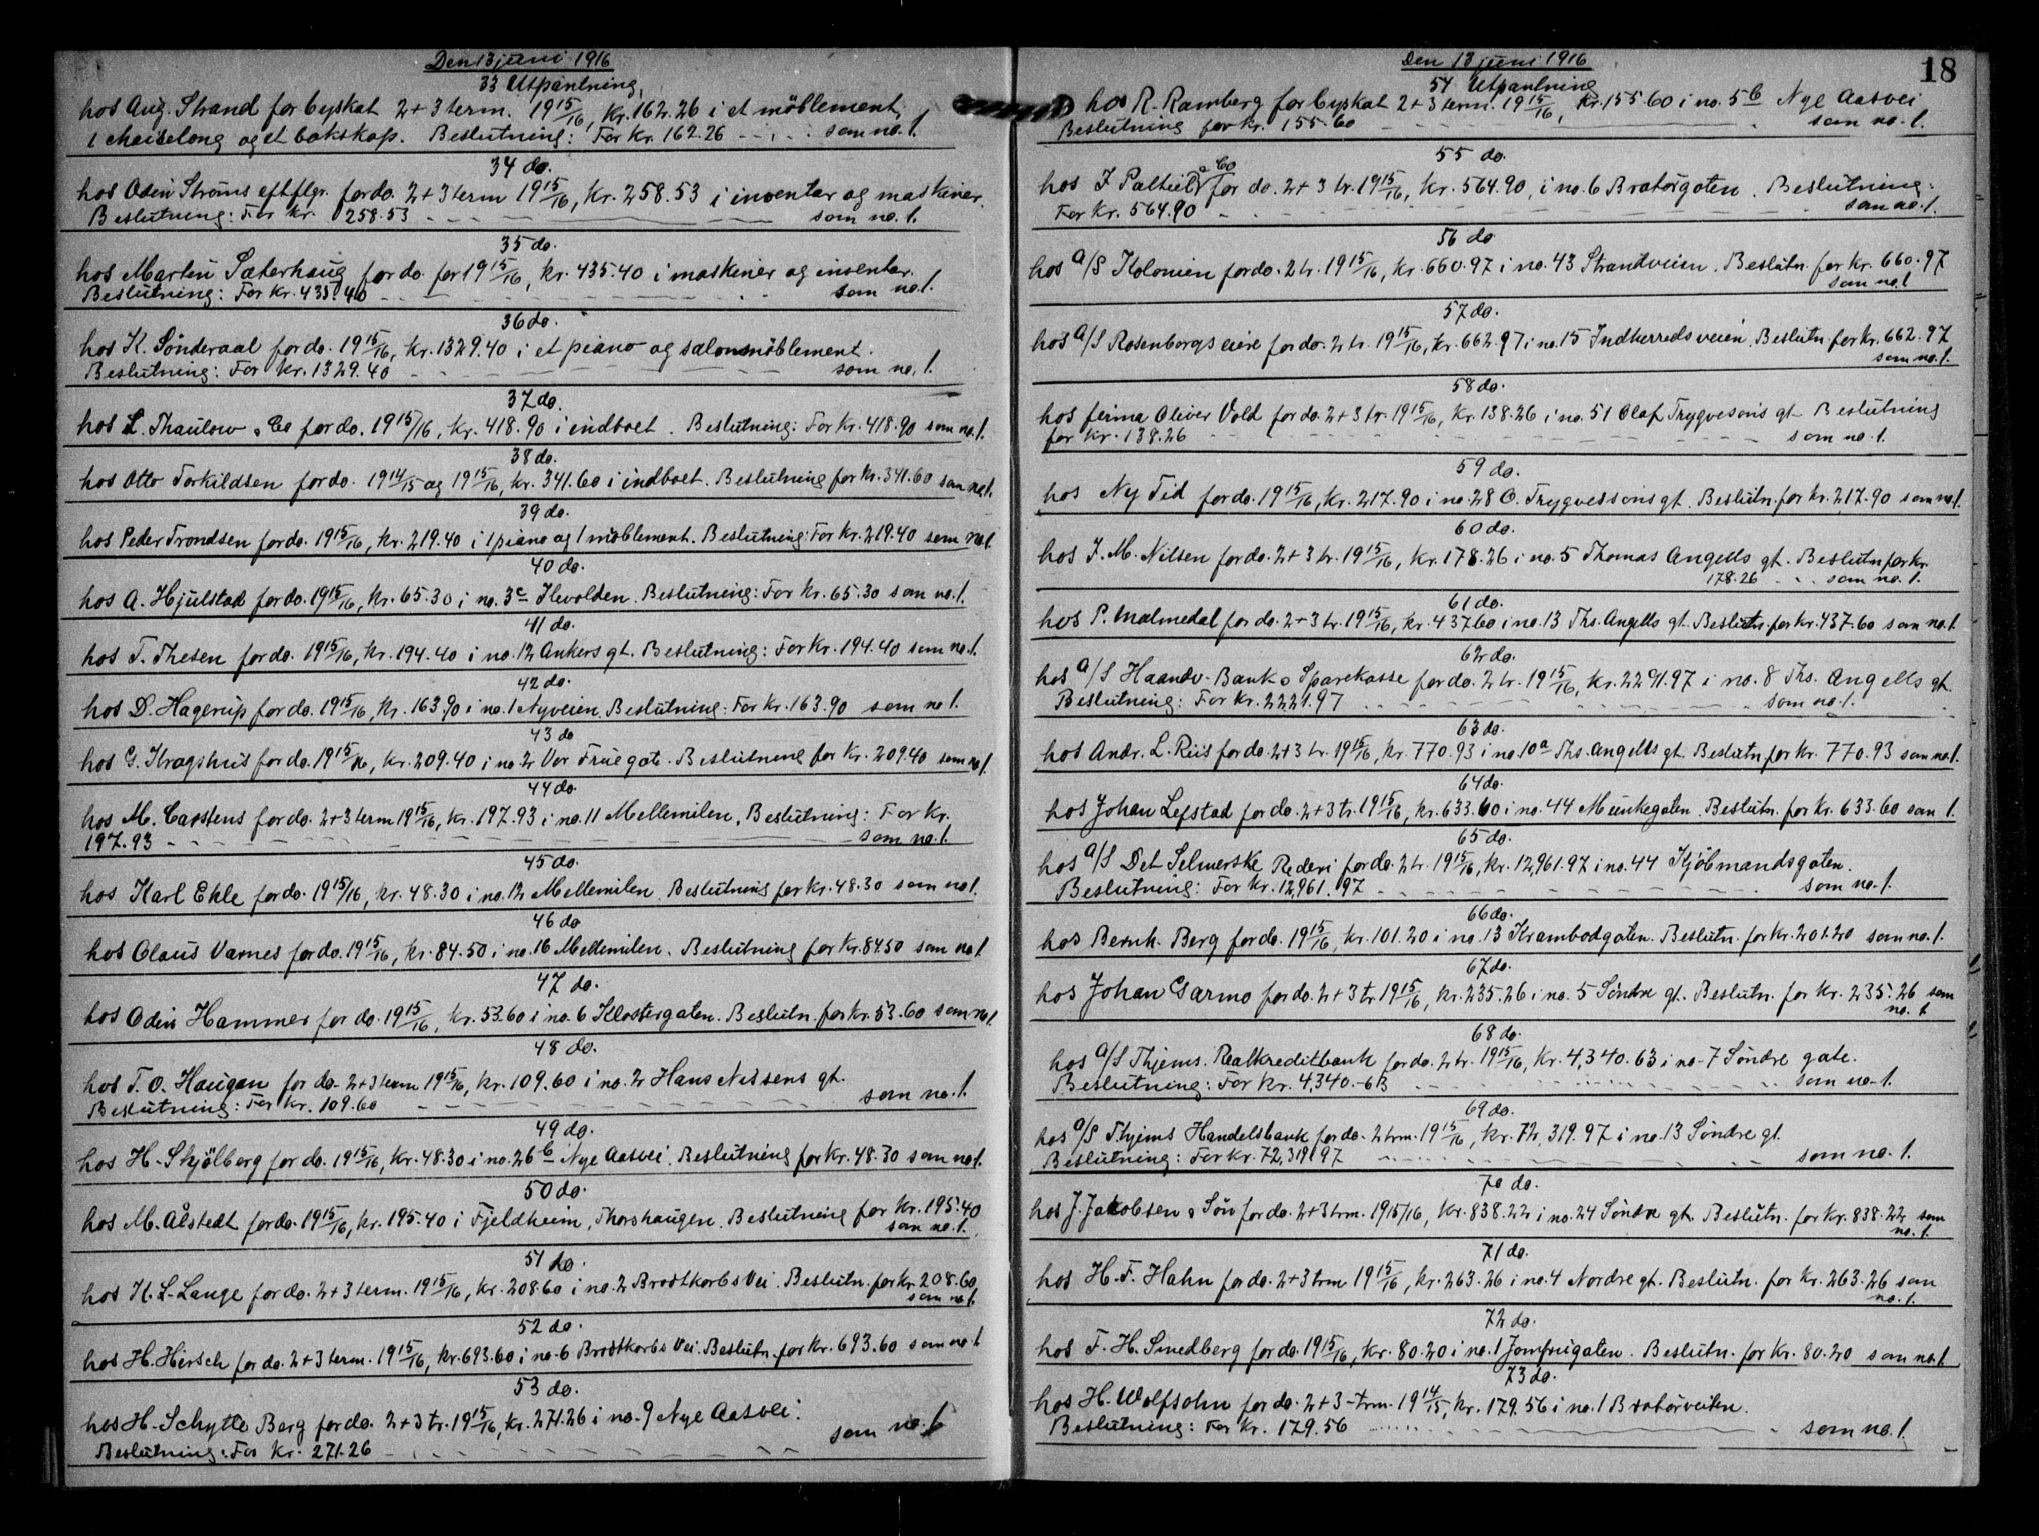 Den 13 juni 1916
33 Utpantning,
hos Aug. Strand for byskat 2+3 term. 1915/16, kr. 162.26 i et möblement,
1 og et bokskap. Beslutning: For kr. 162.26 som no. 1.
34 do.
hos Odin Ströms eftflgr. for do. 2+3 term 1915/16, kr. 258.53 i inventar og maskiner.
Beslutning: For kr. 258.53 som no. 1.
35 do.
hos Martin Sæterhaug for do. for 1915/16, kr. 435.40 i maskiner og inventar.
Beslutning: For kr. 435.40 som no. 1.
36 do.
hos K. Sönderaal for do. 1915/16, kr. 1329.40 i et piano og salonmöblement.
Beslutning: For kr. 1329.40 som no. 1.
37 do.
hos L. Thaulow & Co for do. 1915/16, kr. 418.90 i indboet. Beslutning: For kr. 418.90 som no. 1.
38 do.
hos Otto Torkildsen for do. 1914/15 og 1915/16, kr. 341.60 i indboet. Beslutning for kr. 341.60 som no. 1.
39 do.
hos Peder Trondsen for do. 1915/16, kr. 219.40 i 1 piano og 1 möblement. Beslutning: For kr. 219.40 som no. 1.
40 do.
hos A. Hjulstad for do. 1915/16, kr. 65.30 i no. 3c Ilevolden. Beslutning: For kr. 65.30 som no. 1.
41 do.
hos T. Thesen for do. 1915/16, kr. 194.40 i no. 12 Ankers gt. Beslutning: For kr. 194.40 som no. 1.
42 do.
hos D. Hagerup for do. 1915/16, kr. 163.90 i no. 1 Nyveien. Beslutning: For kr. 163.90 som no 1.
43 do
hos G. Kragshus for do. 1915/16, kr. 209.40 i no. 2 Vor Fruegate. Beslutning for kr. 209.40 som no 1.
44 do.
hos M. Carstens for do. 2+3 term 1915/16, kr. 197.93 i no. 11 Mellemilen. Beslutning: For kr.
197.93 som no. 1.
45 do.
hos Karl Ekle for do. 1915/16, kr. 48.30 i no. 12 Mellemilen. Beslutning for kr. 48.30 som no 1.
46 do
hos Olaus Varnes for do. 1915/16, kr. 84.50 i no. 16 Mellemilen. Beslutning for kr. 84.50 som no 1.
47 do.
hos Odin Hammer for do. 1915/16, kr. 53.60 i no. 6 Klostergaten. Beslutn. for kr. 53.60 som no 1.
48 do.
hos T. O. Haugan for do. 2+3 term 1915/16, kr. 109.60 i no. 2 Hans Nissens gt.
Beslutning: For kr. 109.60 som no. 1.
49 do.
hos H. Skjölberg for do. 1915/16, kr. 48.30 i no. 26b Nye Aasvei. Beslutning for kr. 48.30 som no 1.
50 do.
hos M. Ålstedt for do. 1915/16, kr. 195.40 i Fjeldheim, Thorshaugen. Beslutning for kr. 195.40
som no. 1.
51 do.
hos K. L. Lange for do. 2+3 term. 1915/16, kr. 208.60 i no. 2 Brodtkorbs Vei. Beslutn. for kr. 208.60.
som no 1.
52 do.
hos H. Hirsch for do. 2+3 term. 1915/16, kr. 693.60 i no. 6 Brodtkorbs Vei. Beslutn. for kr. 693.60 som no 1
53 do.
hos H. Schytte Berg for do. 2+3 tr. 1915/16, kr. 271.26 i no. 9 Nye Aasvei.
Beslutning: For kr. 271.26 som no. 1
Den 13 juni 1916
18
54 Utpantning
hos R. Ramberg for byskat 2+3 term. 1915/16, kr. 155.60 i no. 5b Nye Aasvei
Beslutning for kr. 155.60 som no. 1.
55 do.
hos I Paltiel & Co for do. 2+3 tr. 1915/16, kr. 564.90, i no. 6 Bratörgaten. Beslutning:
For kr. 564.90 som no. 1.
56 do
hos A/S Kolonien for do. 2 tr. 1915/16, kr. 660.97 i no. 43 Strandveien. Beslutn. for kr. 660.97
som no. 1
57 do.
hos A/S Rosenborgs eiere for do. 2 tr. 1915/16, kr. 662.97 i no. 15 Indherredsveien. Beslutn. for kr. 662.97
som no. 1.
58 do.
hos firma Oliver Vold for do. 2+3 tr. 1915/16, kr. 138.26 i no. 51 Olaf Trygvesöns gt. Beslutning
for kr. 138.26 som no. 1.
59 do.
hos Ny Tid for do. 1915/16, kr. 217.90 i no. 28 O. Trygvessöns gt. Beslutn. for kr. 217.90 som no 1.
60 do.
hos I. M. Nilsen for do. 2+3 tr. 1915/16, kr. 178.26 i no. 5 Thomas Angells gt. Beslutn for kr.
178.26 som no. 1.
61 do.
hos P. Malmedal for do. 2+3 tr. 1915/16, kr. 437.60 i no. 13 Ths. Angells gt. Beslutn. for kr. 437.60 som no. 1
62 do.
hos A/S Haandv. Bank o Sparekasse for do. 2 tr. 1915/16, kr. 2221.97 i no. 8 Ths. Angells gt.
Beslutning: For kr. 2221.97 som no. 1.
63 do.
hos Andr. L. Riis for do. 2+3 tr. 1915/16, kr. 770.93 i no. 10a Ths. Angells gt. Beslutn for kr. 770.93 som no. 1.
64 do.
hos Johan Lefstad for do. 2+3 tr. 1915/16, kr. 633.60 i no. 44 Munkegaten. Beslutn. for kr. 633.60 som 1.
65 do.
hos A/S Det Selmerske Rederi for do. 2 tr. 1915/16, kr. 12,961.97 i no. 44 Kjöbmandsgaten.
Beslutning: For kr. 12,961.97 som no. 1.
66 do.
hos Bernh. Berg for do. 1915/16, kr. 101.20 i no. 13 Krambodgaten. Beslutn. for kr. 201.20 som no. 1.
67 do.
hos Johan Garmo for do. 2+3 tr. 1915/16, kr. 235.26 i no. 5 Söndre gt. Beslutn. for kr. 235.26 som
no. 1
68 do.
hos A/S Thjems. Realkreditbank for do. 2 tr. 1915/16, kr. 4,340.63 i no. 7 Söndre gate.
Beslutning: For kr. 4,340.63 som no. 1.
69 do.
hos A/S Thjems Handelsbank for do. 2 trm. 1915/16, kr. 72,319.97 i no. 13 Söndre gt.
Beslutning: For kr. 72,319.97 som no. 1.
70 do.
hos J. Jakobsen & Sön for do. 2+3 trm. 1915/16, kr. 838.22 i no. 24 Söndre gt. Beslutn. for kr. 838.22 som
no. 1.
71 do.
hos H. F. Hahn for do. 2+3 trm 1915/16, kr. 263.26 i no. 4 Nordre gt. Beslutn. for kr. 263.26 som
no. 1.
72 do.
hos F. H. Smedberg for do. 1915/16, kr. 80.20 i no. 1 Jomfrugaten. Beslutn. for kr. 80.20 som no. 1
73 do.
hos H. Wolfsohn for do. 2+3 trm. 1914/15, kr. 179.56 i no. 1 Bratörveiten.
Beslutning: For kr. 179.56 som no. 1.